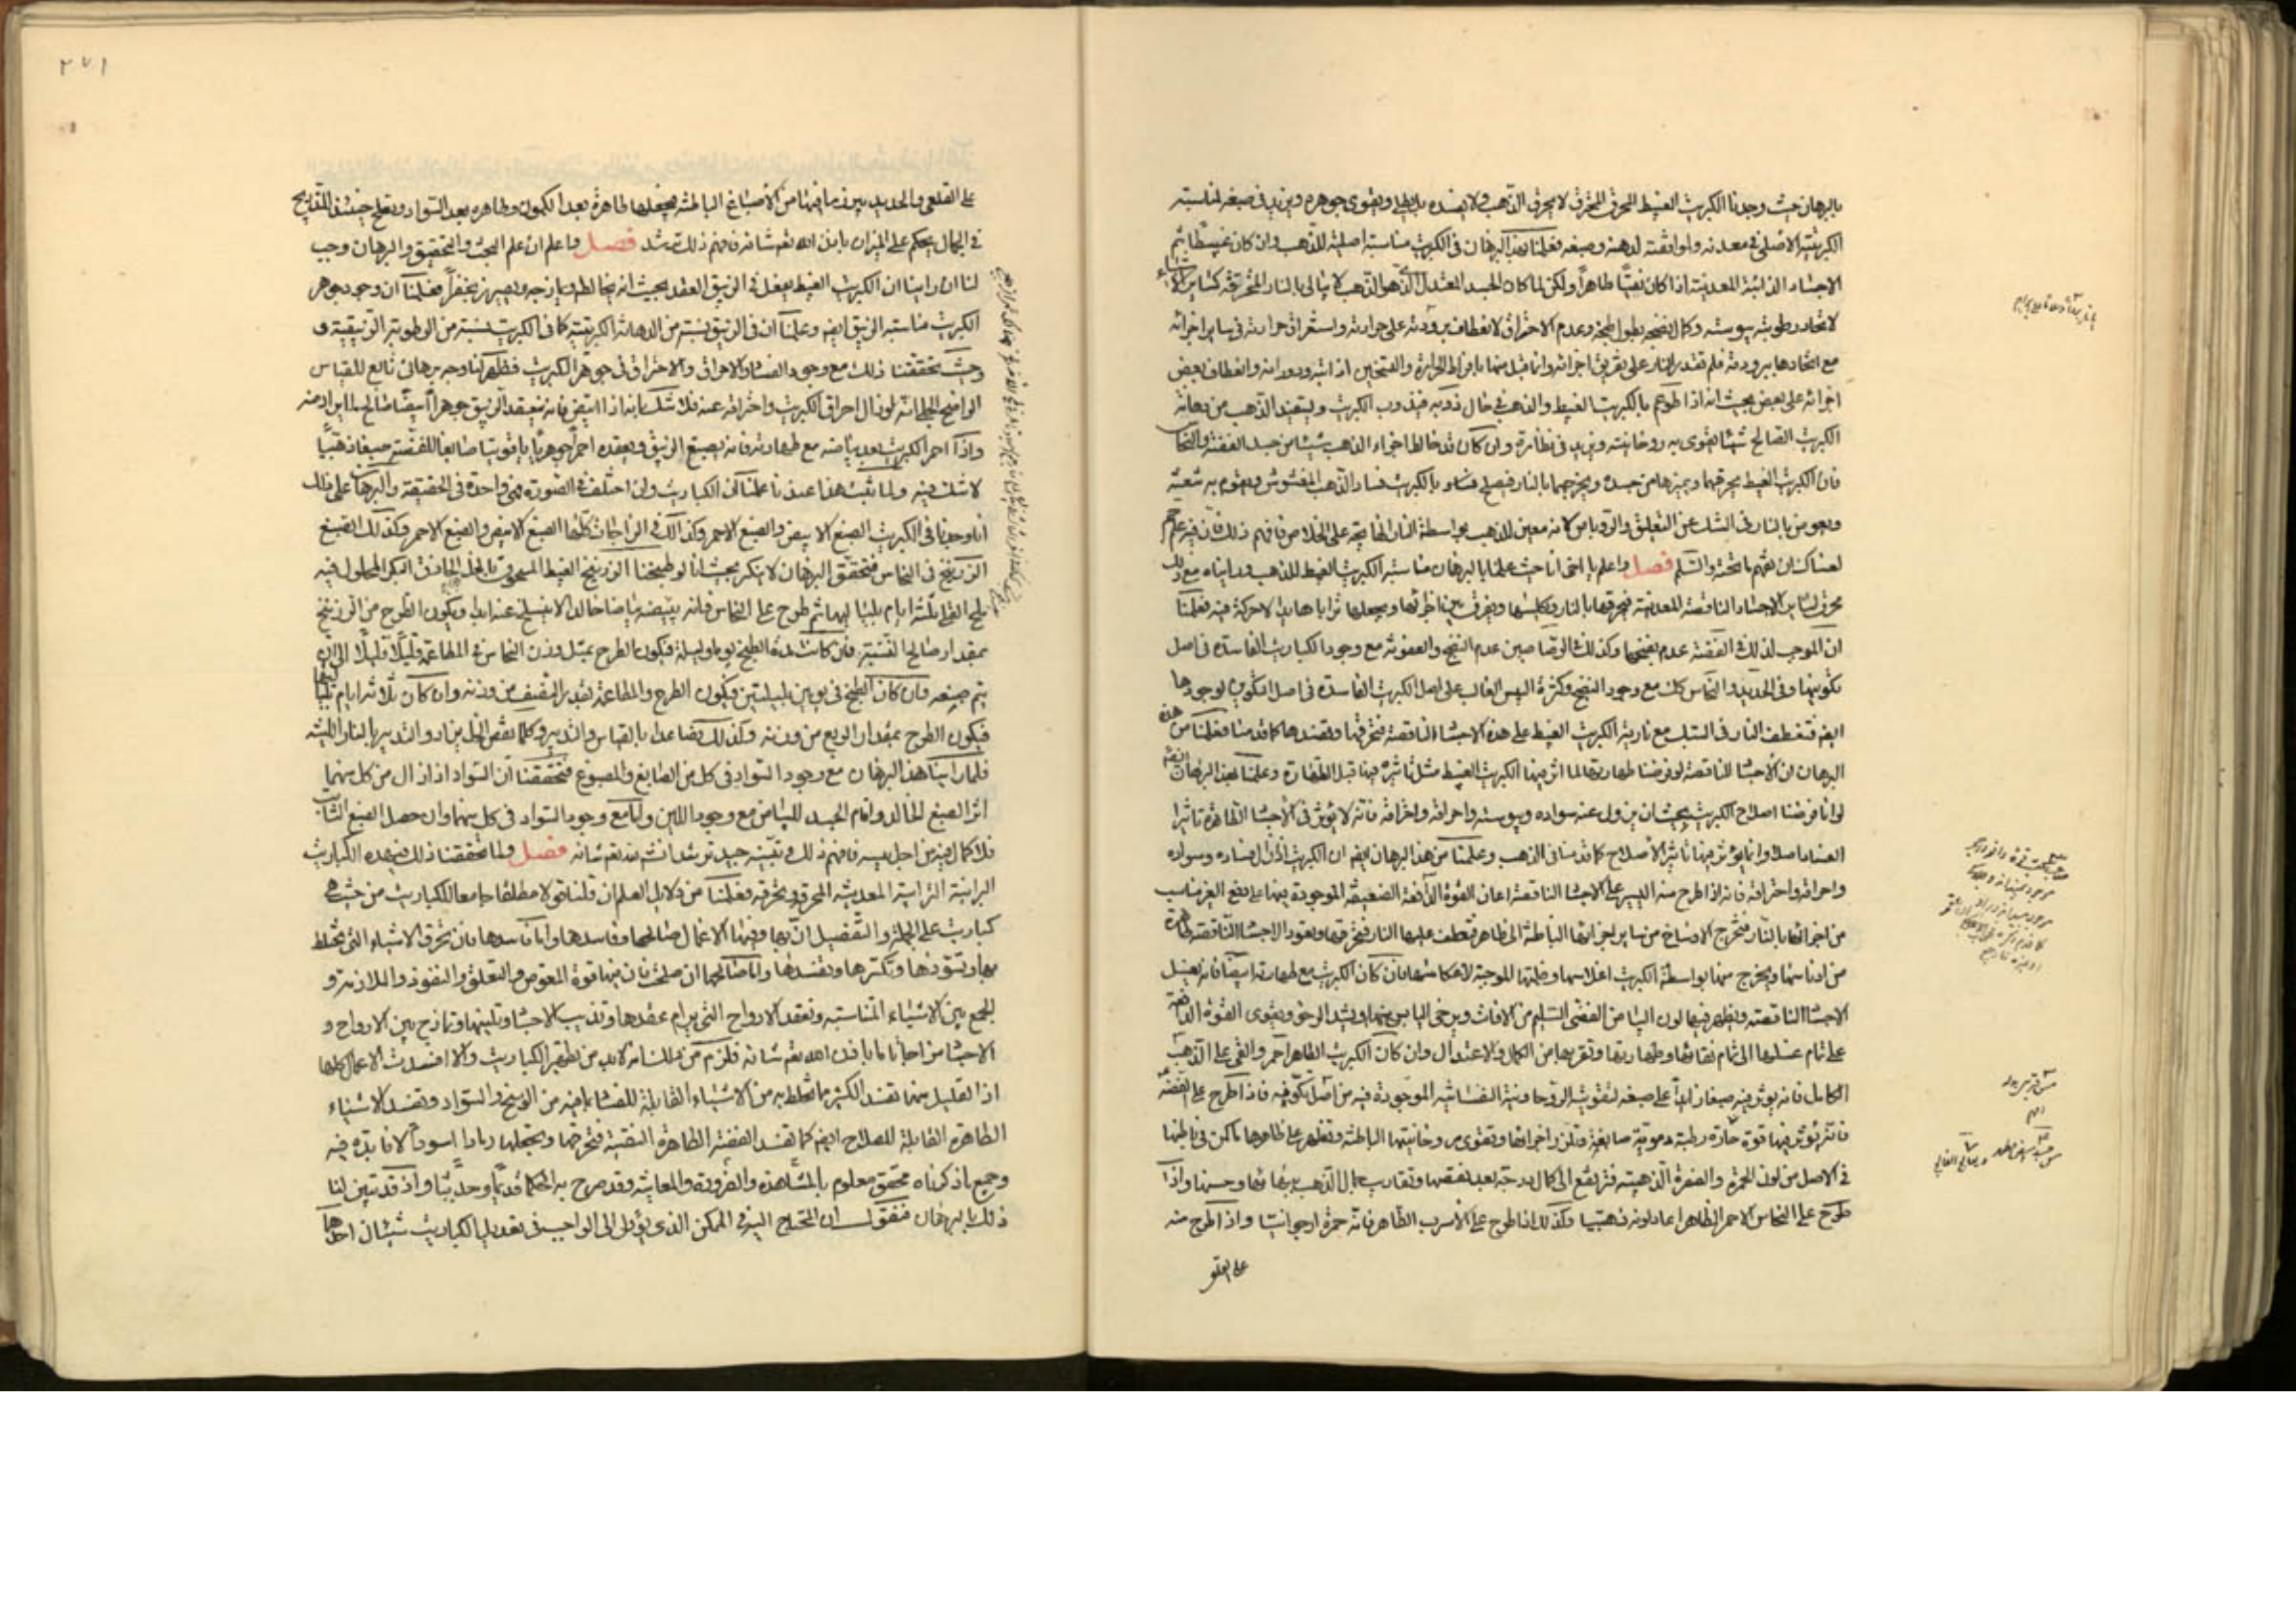 بالبرهان حيث وجدنا الكبريت الغبيط المحرق المحترق لا يحرق الذهب ولا يفسده بل يطهره ويقوى جوهره ويزيد في صبغه لمناسبته
الكبريتية الاصلى في معدنه ولموافقته لدهنه وصبغه فعلمنا بهذا البرهان ان في الكبريت مناسبة اصلية للذهب وان كان غبيطا ثم
الاجساد الذائبة المعدنية اذا كان نقيا طاهرا ولكن لما كان الجسد المعتدل الذى هو الذهب لا يبالى بالنار المحرقة كساير الاشياء
لاتحاد رطوبته بيبوسته وكمال نضجه بطول طبخه وعدم الاحتراق لانعطاف برودته على حرارته واستغراق حرارته في ساير اجزائه
مع اتحادها ببرودته فلم تقدر النار على تفريق اجزائه وانما قبل منها بافراط الحرارة والتسخين اذابته ودورانه وانعطاف بعض
اجزائه على بعض بحيث انه اذا طوعم بالكبريت الغبيط والذهب في حال ذوبه فيذوب الكبريت ويستفيد الذهب من دهانة
الكبريت الصالح شيئا يقوى به روحانيته ويزيد في نظارة وان كان قد خالط اجزاء الذهب شيئا من جسد الفضة والنحاس
فان الكبريت الغبيط يحرقهما ويميزهما من جسده ويخرجهما بالنار فيصلح فساد بالكبريت فساد الذهب المغشوش ويقوم به شعبه
ويعوص بالنار في السبك عن التعلق والروباص لانه معين للذهب بواسطة النار الهايجة على الخلاص فافهم ذلك فان فيه علم جم
لعساك ان تفهم ما تحته والسلم فصل واعلم يا اخى انا حيث علمنا بالبرهان مناسبة الكبريت الغبيط للذهب ورايناه مع ذلك
محرق لساير الاجساد الناقصة المعدنية فيحرقها بالنار ويكلسها ويفرق بين اجزائها ويجعلها ترابا هابيا لا حركة فيه فعلمنا
ان الموجب لذلك في الفضة عدم نضجها وكذلك في الرصاصين عدم النضج والعفونة مع وجود الكباريت الفاسدة في اصل
تكوينها وفي الحديد والنحاس كل مع وجود النضج وكثرة اليبس الغالب على اصل الكبريت الفاسدة في اصل التكوين لوجودها
ايضا فتغطف النار في السبك مع نارية الكبريت الغبيط على هذه الاجساد الناقصة فتحرقها وتفسدها كما قدمنا فعلمنا من هذه
البرهان ان الاجساد الناقصة لو فرضنا طهارتها لما اثر فيها الكبريت الغبيط مثل تاثيره فيها قبل الطهارة وعلمنا بهذا البرهان ايضا
لو انا فرضنا اصلاح الكبريت بحيث ان يزول عنه سواده ويبوسته واحراقه واحتراقه فانه لا يؤثر في الاجساد الطاهرة تاثيرا
الفساد اصلا وانما يؤثر فيها تاثير الاصلاح كما قدمنا في الذهب وعلمنا من هذا البرهان ايضا ان الكبريت اذا زال فساده وسواده
واحراقه واحتراقه فانه اذا طرح منه اليسير على الاجساد الناقصة اعان القوة الدافعة الضعيفة الموجودة فيها على دفع الغير مناسب
من اجزائها بالنار فتخرج الاوساخ من ساير اجزائها الباطنة الى ظاهر فتعطف عليها النار فتحرقها وتعود الاجساد الناقصة طاهرة
من ادناسها ويخرج منها بواسطة الكبريت اغلاسها وظلمتها الموجبة لانعكاسها فان كان الكبريت مع طهارته ابيضا فانه يغسل
الاجساد الناقصة ويظهر فيها لون البياض الفضى السلم من الافات ويرخى اليابس منها ويشد الرخو ويقوى القوة الدافعة
على تمام غسلها الى تمام نقائها وطهارتها وتقربها من الكمال والاعتدال وان كان الكبريت الطاهر احمر والقى على الذهب
الكامل فانه يوثر فيه صبغا زايدا على صبغه لتقويته الروحانية النفسانية الموجودة فيه من اصل تكونه فاذا طرح على الفضة
فانه يؤثر فيها قوة حارة رطبة دموية صابغة وتلزز اجزائها وتقوى من روحانيتها الباطنة وتظهر على ظاهرها ما كمن في باطنها
في الاصل من لون الحمرة والصفرة الذهبية فترتفع الى كمال درجته بعد نقصها وتقارب كمال الذهب بنمائها وحسنها واذا
طرح على النحاس الاحمر الطاهر اعاد لونه ذهبيا وكذلك اذا طرح على الاسرب الطاهر فانه حمرة ارجوانيا واذا طرح منه
على القلعى
٢٧١
على القلعى والحديد يبرز ما فيها من الاصباغ الباطنة فيجعلها ظاهرة بعد الكمون وطاهره بعد السواد ويصلح حينئذ للتدابير
في الحال بحكم على الميزان باذن الله تعم شانه فافهم ذلك ترشد فصل واعلم ان علم البحث والتحقيق والبرهان وجب
لنا ان راينا ان الكبريت الغبيط يفعل في الزيبق العقد بحيث انه يخالطه ويمازجه ويصير زنجفرا فعلمنا ان وجود جوهر
الكبريت مناسبة الزيبق ايضا وعلمنا ان في الزيبق نسبة من الدهانة الكبريتية كما في الكبريت نسبة من الرطوبة الزيبقية و
وحيث تحققنا ذلك مع وجود الفساد والاحراق والاحتراق في جوهر الكبريت فظهر لنا وجه برهانى تابع للقياس
الواضح الجلى انه لو زال احراق الكبريت واحتراقه عنه فلا شك بانه اذا ابيض فانه يعقد الزيبق جوهرا ابيضا صالحا لما يراد منه
واذا احمر الكبريت بعد بياضه مع طهارته فانه يصبغ الزيبق ويعقده احمر جوهريا ياقوتيا صابغا للفضة صبغا ذهبيا
لا شك فيه ولما ثبت هذا عندنا علمنا ان الكباريت وان اختلف في الصورة فهى واحدة في الحقيقة والبرهان على ذلك
انا وجدنا في الكبريت الصبغ الابيض والصبغ الاحمر وكذلك في الزاجات كلها الصبغ الابيض والصبغ الاحمر وكذلك الصبغ
الزرنيخ في النحاس فتحقق البرهان لا ينكر بحيث انا لو طبخنا الزرنيخ الغبيط المسحوق بالخل الحاذق البكر المحلول فيه
ملح القلى ثلثة ايام بلياليها ثم طرح على النحاس فانه يبيضه بياضا خالدا لا ينسلخ عنه ابدا ويكون الطرح من الزرنيخ
بمقدار صالح النسبة فان كانت مدة الطبخ يوما وليلة فيكون الطرح بمثل وزن النحاس في المطاعمة قليلا قليلا الى ان
يتم صبغه فان كان الطبخ في يومين بليلتين فيكون الطرح والمطاعمة بقدر النصف من وزنه وان كان ثلاثة ايام بلياليها
فيكون الطرح بمقدار الربع من وزنه وكذلك يضاعف ابدا بالقياس والتدبير وكلما نقص الخل يزاد والتدبير بالنار اللينة
فلما راينا هذا البرهان مع وجود السواد في كل من الصابغ والمصبوغ فتحققنا ان السواد اذا زال من كل منهما
اثر الصبغ الخالد وانام الجسد للبياض مع وجود اللين واما مع وجود السواد في كل منهما وان حصل الصبغ الثابت
فلا كمال فيه من اجل يبسه فافهم ذلك وتبينه جيد ترشد انشاء الله تعم شانه فصل ولما تحققنا ذلك في هذه الكباريت
البرانية الترابية المعدنية المحرقة ومحترقه فعلمنا من دلايل العلم ان قلنا قولا مطلقا جامعا للكباريت من حيث هى
كباريت على الجملة والتفصيل ان بها وفيها الاعمال صالحها وفاسدها واما فاسدها فان تحرق الاشياء التى تختلط
بها وتسودها وتكسرها وتفسدها واما صالحها ان صلحت فان فيها قوة الغوص والتعلق والنفوذ والملازمة و
الجمع بين الاشياء المتناسبه وتعقد الارواح التى يرام عقدها وتذيب الاجساد وتلينها وتمازج بين الارواح و
الاجساد مزاجا تاما باذن الله تعم شانه فلزم من علمنا انه لابد من تطهير الكباريت والا افسدت الاعمال كلها
اذا القليل منها تفسد الكثير ما تخلط به من الاشياء القابلة للفساد لما فيه من الوسخ والسواد وتفسد الاشياء
الطاهرة القابلة للصلاح ايضا كما تفسد الفضة الطاهرة النقية فتحرقها وتجعلها رمادا اسودا لا فائدة فيه
وجميع ما ذكرناه محقق معلوم بالمشاهدة والضرورة والمعاينة وقد صرح به الحكماء قديما وحديثا واذ قد تبين لنا
ذلك بالبرهان فنقول ان المحتاج اليه في الممكن الذى يؤول الى الواجب في تعديل الكباريت شيئان احدهما